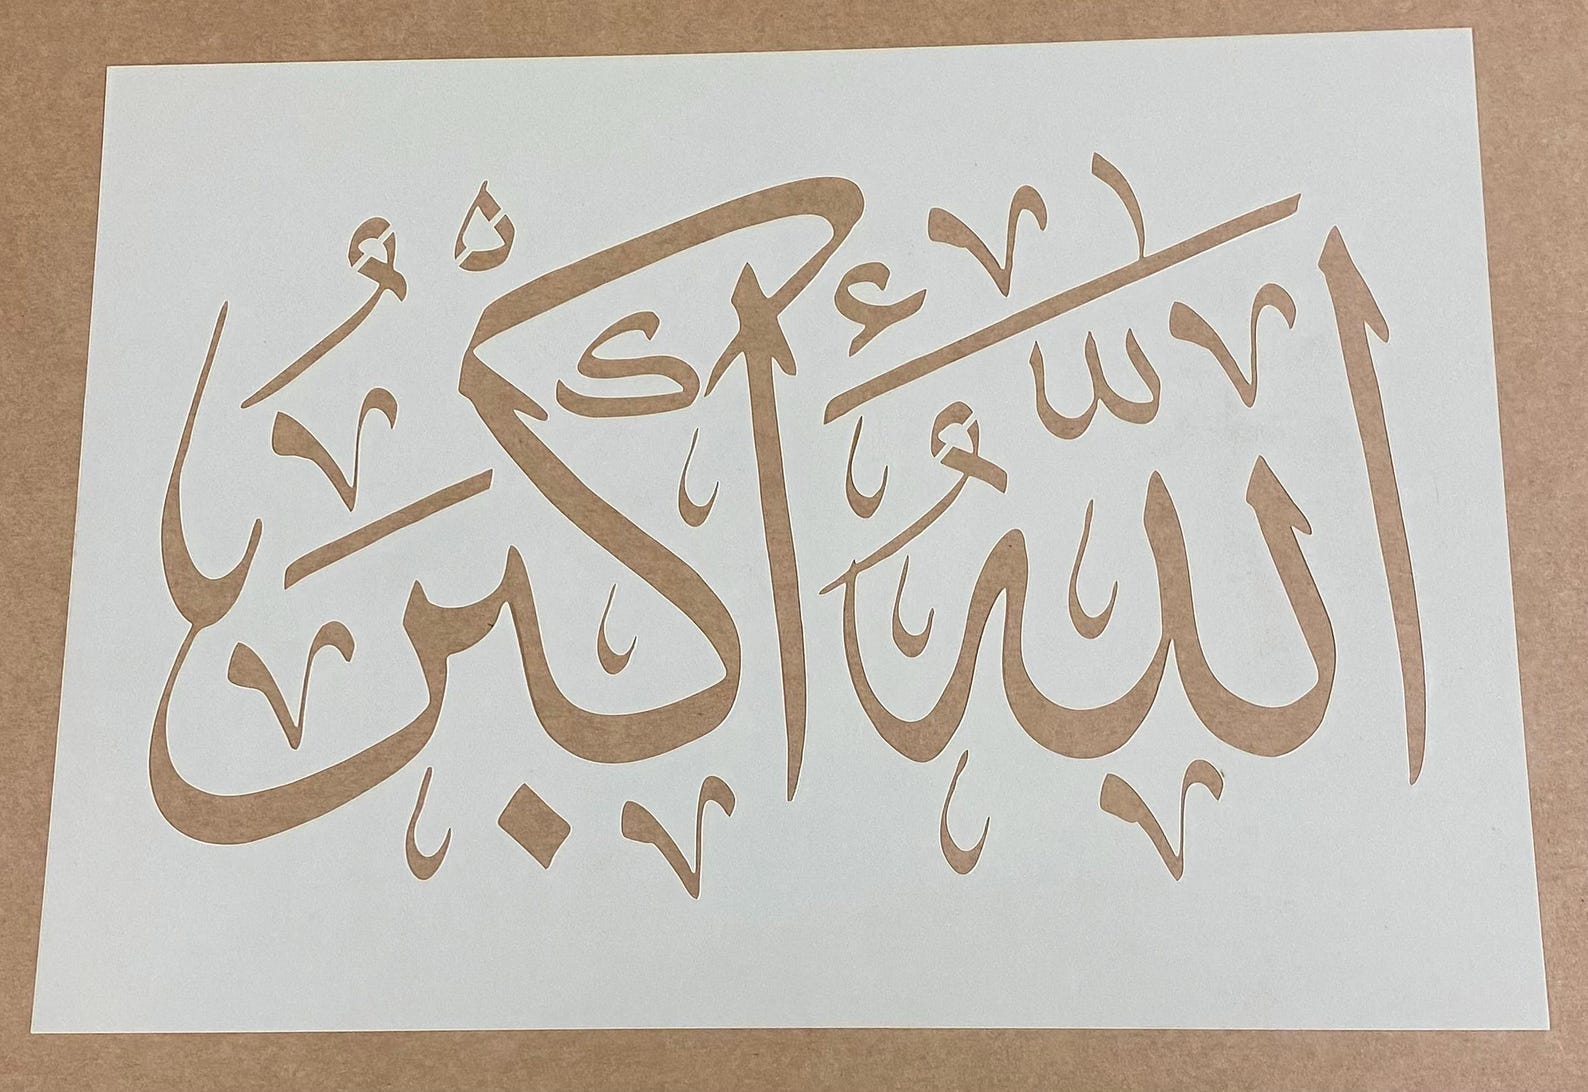 اللّٰهُ أَكْبَرُ